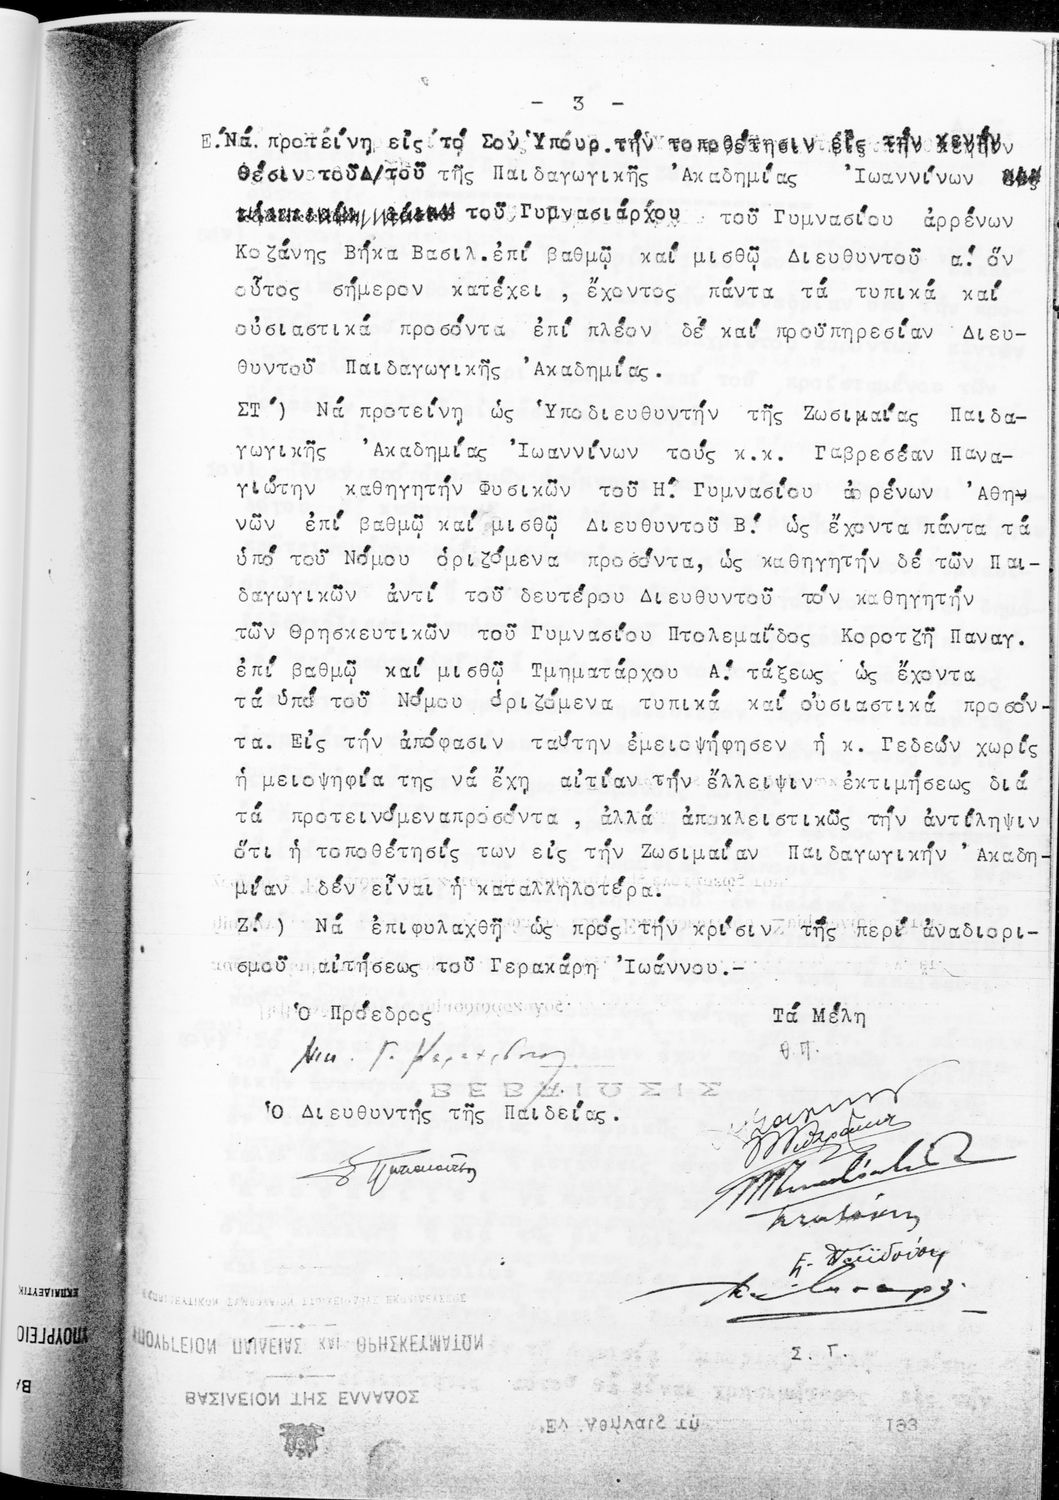 - 3 -
Ε.Νά προτείνῃ εἰς τό Σον Ὑπουρ.τήν τοποθέτησιν εἰς τήν κενήν
θέσιν τοῦ Δ/τοῦ τῆς Παιδαγωγικῆς Ἀκαδημίας Ἰωαννίνων
τοῦ Γυμνασιάρχου τοῦ Γυμνασίου ἀρρένων
Κοζάνης Βήκα Βασιλ.ἐπί βαθμῷ καί μισθῷ Διευθυντοῦ α.΄ ὅν
οὗτος σήμερον κατέχει , ἔχοντος πάντα τά τυπικά καί
οὐσιαστικά προσόντα ἐπί πλέον δέ καί προϋπηρεσίαν Διευ-
θυντοῦ Παιδαγωγικῆς Ἀκαδημίας.
ΣΤ΄) Νά προτείνῃ ὡς Ὑποδιευθυντήν τῆς Ζωσιμαίας Παιδα-
γωγικῆς Ἀκαδημίας Ἰωαννίνων τούς κ.κ. Γαβρεσέαν Πανα-
γιώτην καθηγητήν Φυσικῶν τοῦ Η.΄ Γυμνασίου ἀρρένων Ἀθην
νῶν ἐπί βαθμῷ καί μισθῷ Διευθυντοῦ Β.΄ ὡς ἔχοντα πάντα τά
ὑπό τοῦ Νόμου ὁριζόμενα προσόντα, ὡς καθηγητήν δέ τῶν Παι-
δαγωγικῶν ἀντί τοῦ δευτέρου Διευθυντοῦ τόν καθηγητήν
τῶν θρησκευτικῶν τοῦ Γυμνασίου Πτολεμαΐδος Κοροτζῆ Παναγ.
ἐπί βαθμῷ καί μισθῷ Τμηματάρχου Α.΄ τάξεως ὡς ἔχοντα
τά ὑπό τοῦ Νόμου ὁριζόμενα τυπικά καί οὐσιαστικά προσόν-
τα. Εἰς τήν ἀπόφασιν ταύτην ἐμειοψήφησεν ἡ κ. Γεδεών χωρίς
ἡ μειοψηφία της νά ἔχῃ αἰτίαν τήν ἔλλειψιν ἐκτιμήσεως διά
τά προτεινόμεναπροσόντα , ἀλλά ἀποκλειστικῶς τήν ἀντίληψιν
ὅτι ἡ τοποθέτησίς των εἰς τήν Ζωσιμαίαν Παιδαγωγικήν Ἀκαδη-
μίαν δέν εἶναι ἡ καταλληλοτέρα.
Ζ.΄) Νά ἐπιφυλαχθῇ ὡς πρός τήν κρίσιν τῆς περί ἀναδιορι-
σμοῦ αἰτήσεως τοῦ Γερακάρη Ἰωάννου.-
Ὁ Πρόεδρος Τά Μέλη
Θ.Π.
ΒΕΒΑΙΩΣΙΣ
Ὁ Διευθυντής τῆς Παιδείας.
Σ. Γ.
ΥΠΟΥΡΓΕΙΟΝ ΠΑΙΔΕΙΑΣ ΚΑΙ ΘΡΗΣΚΕΥΜΑΤΩΝ
ΒΑΣΙΛΕΙΟΝ ΤΗΣ ΕΛΛΑΔΟΣ
Ἐν Ἀθήναις τῇ 193